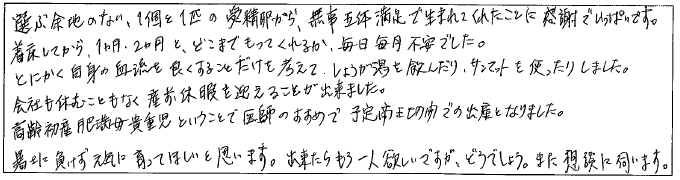 選ぶ余地のない、1個と1匹の受精卵から、無事五体満足で生まれてくれたことに感謝でいっぱいです。
着床してから、1ヶ月・2ヶ月と、どこまでもってくれるか、毎日毎月不安でした。
とにかく自身の血流を良くすることだけを考えて、しょうが湯を飲んだり、サンマットを使ったりしました。
会社も休むこともなく産前休暇を迎えることが出来ました。
高齢初産肥満母貴重児ということで医師のすすめで予定帝王切開での出産となりました。
暑さに負けず元気に育ってほしいと思います。出来たらもう一人欲しいですが、どうでしょう。また相談に伺います。